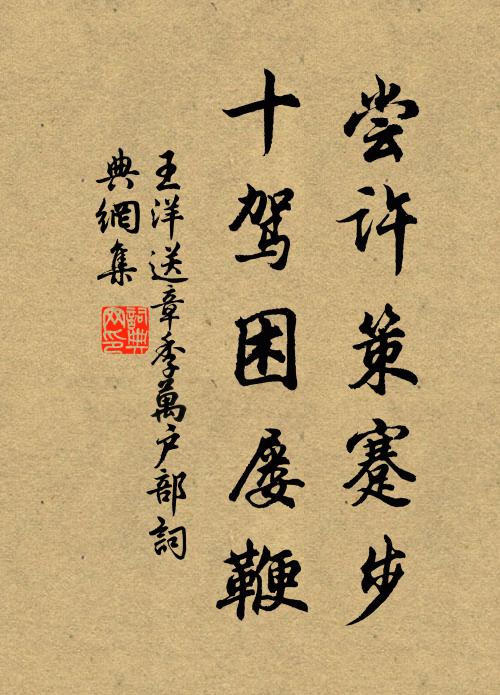 尝许策蹇步
十驾困屡鞭
王洋送章季萬户部詞
典網集
詞典
网印